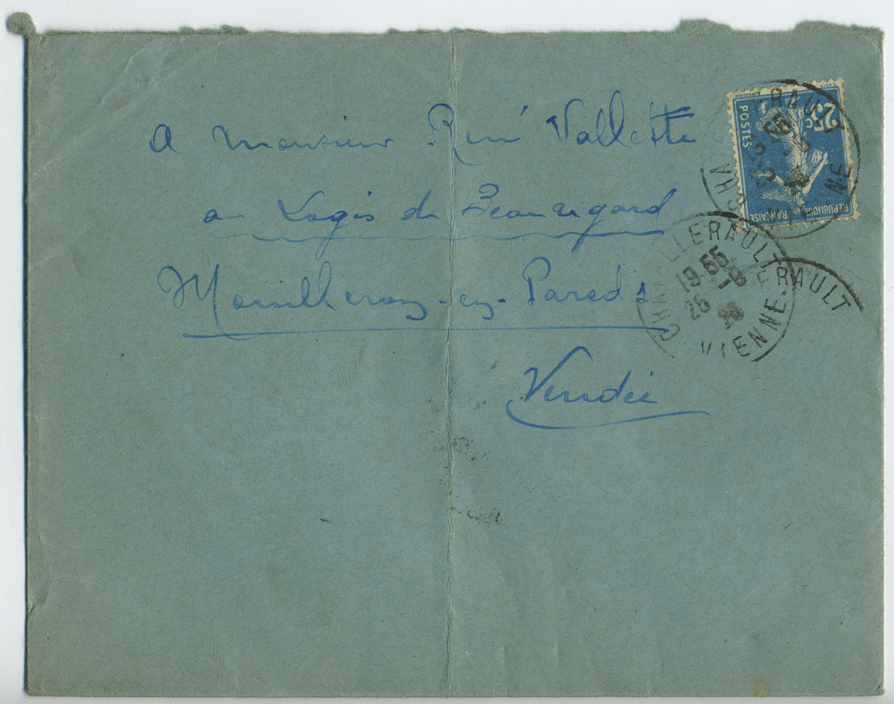 A Monsieur René Vallette
au Logis de Beauregard
Mouilleron-en-Pareds
Vendée
25c
POSTES
REPUBLIQUE FRANÇAISE
CHATELLERAULT
VIENNE
ERAULT